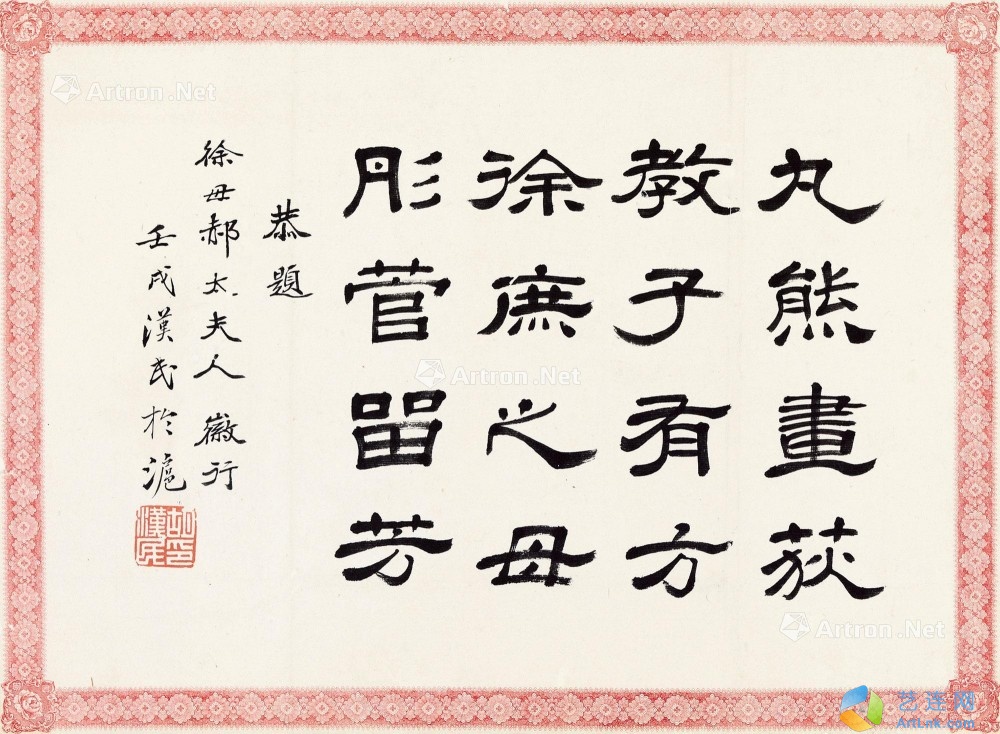 丸熊畫荻
教子有方
徐庶之母
彤菅留芳
恭題
徐母郝太夫人徽行
壬戌漢民於滬
胡漢民印
Artron.Net
Artron.Net
Artron.Net
艺连网
ArtLnk.com